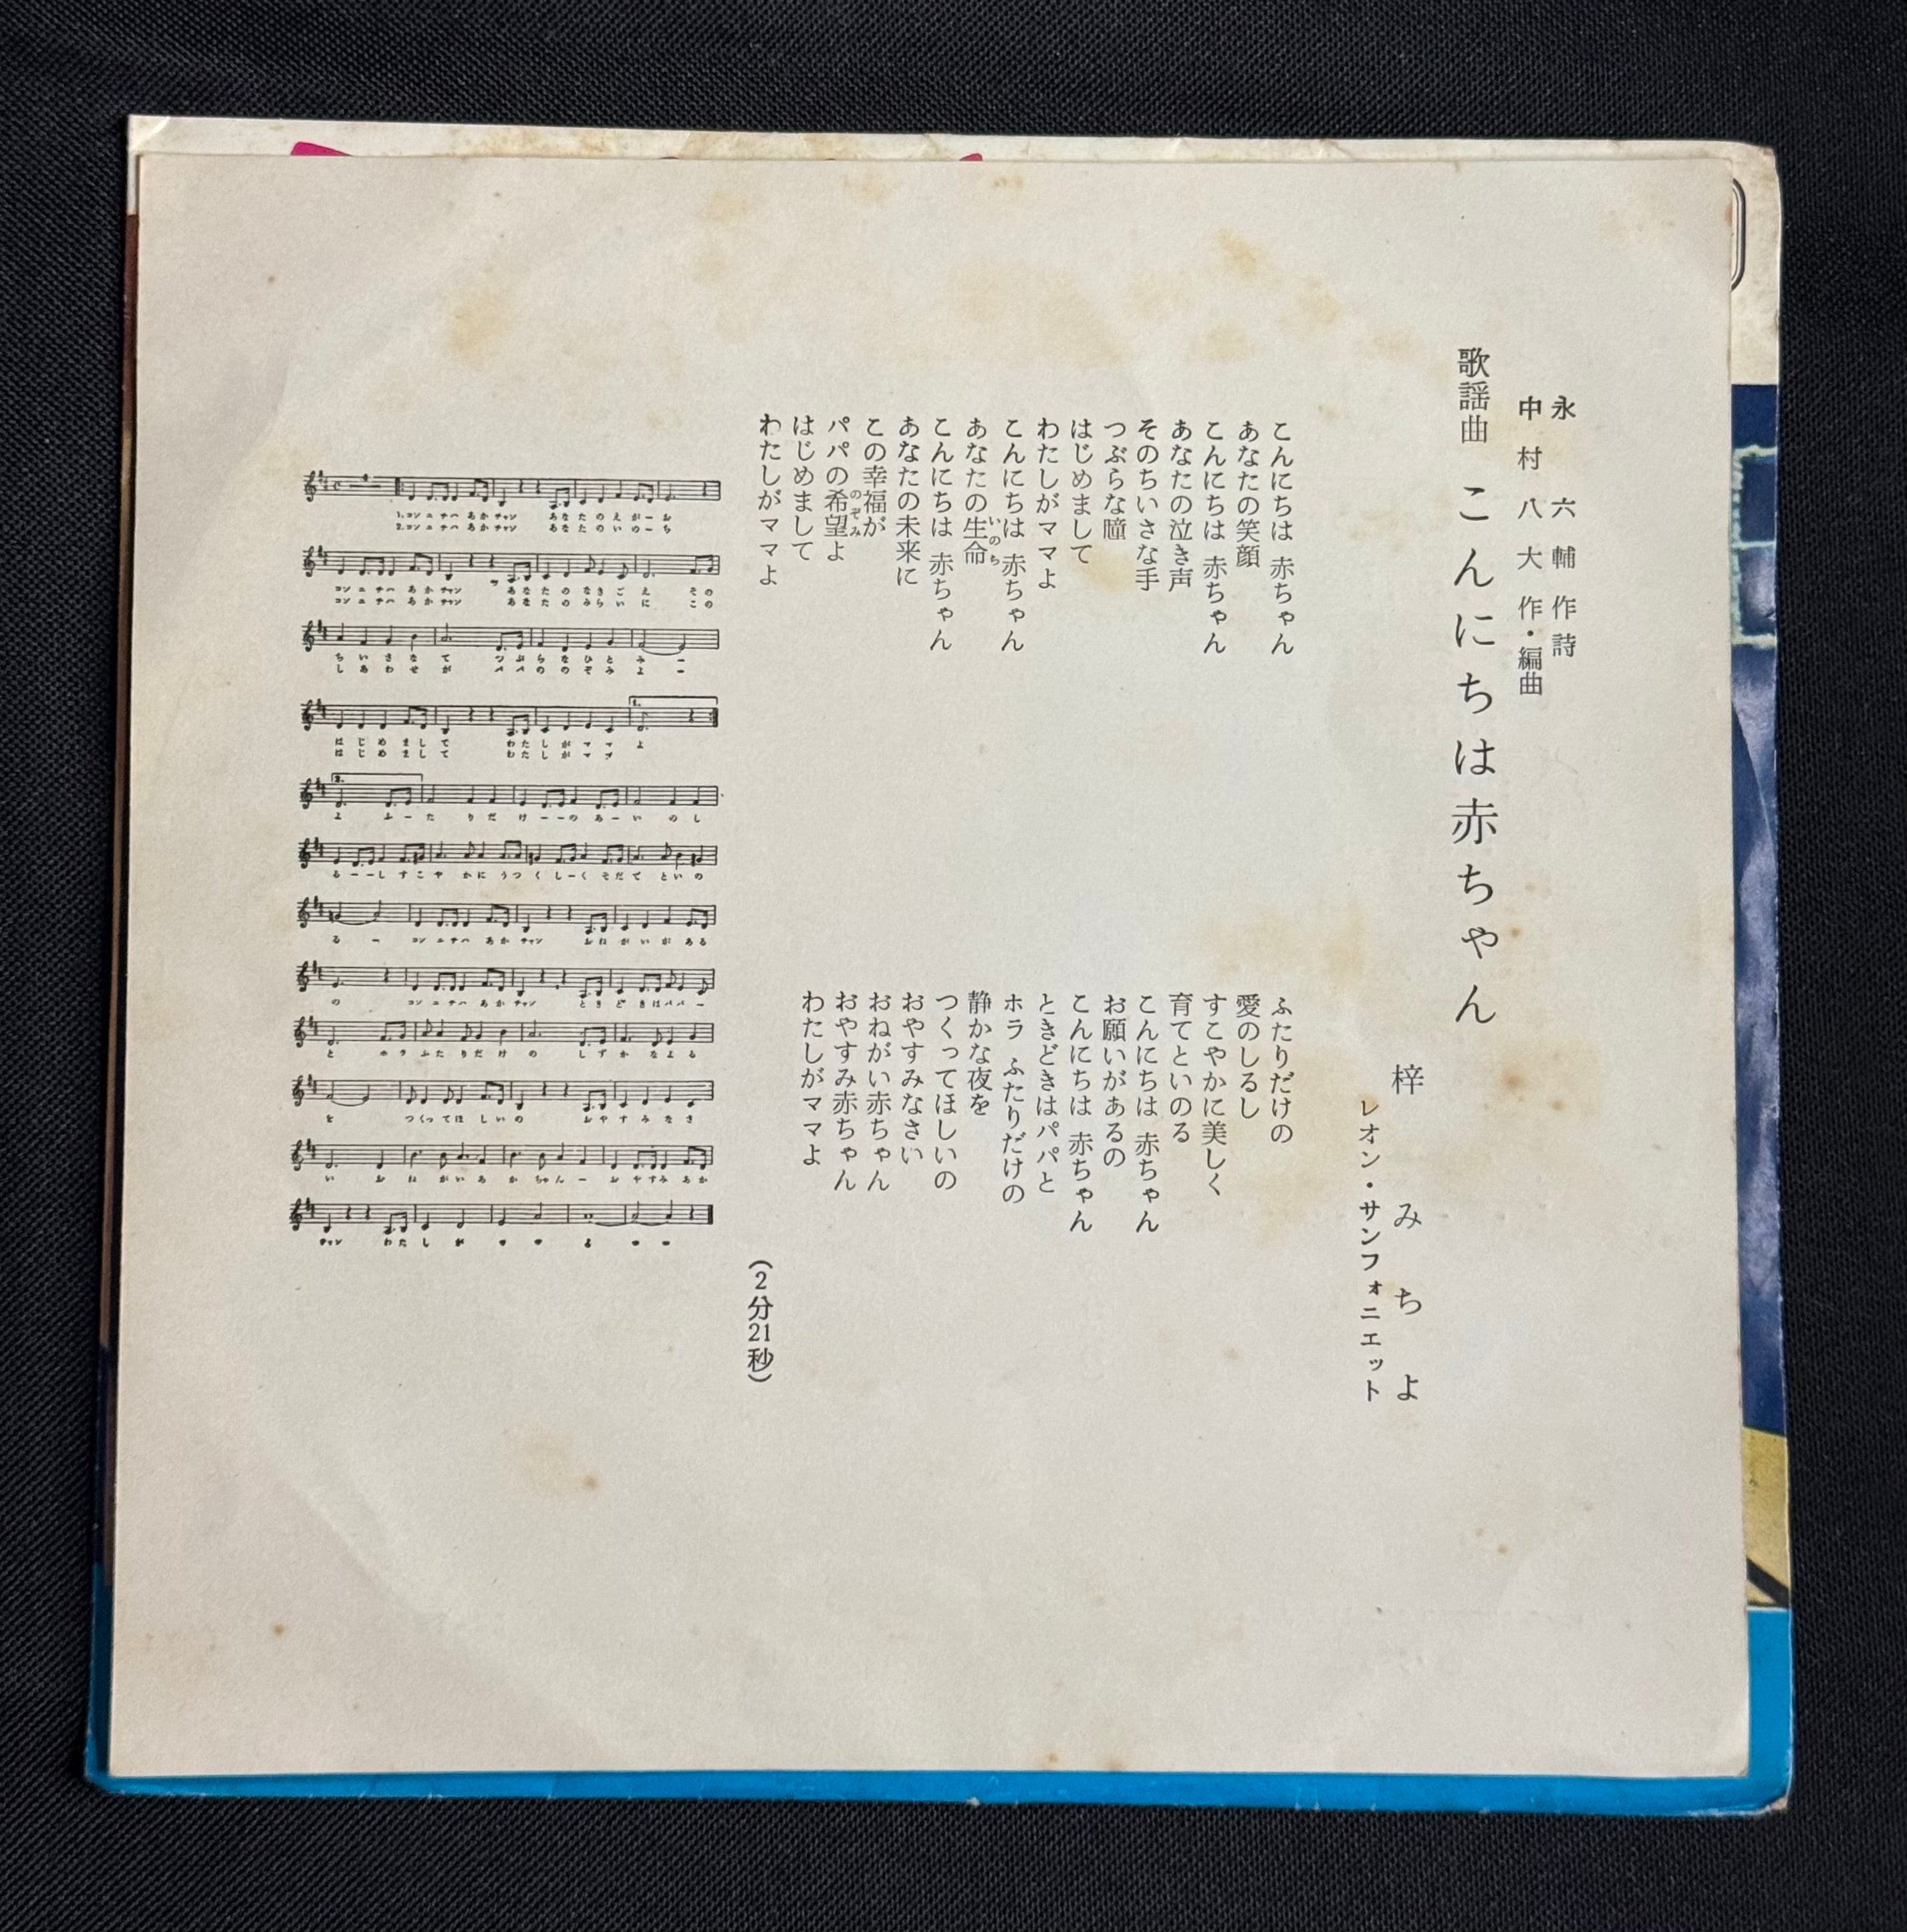 永六輔 作詩
中村八大 作・編曲
歌謡曲 こんにちは赤ちゃん
梓みちよ
レオン・サンフォニエット
こんにちは 赤ちゃん
あなたの笑顔
こんにちは 赤ちゃん
あなたの泣き声
そのちいさな手
つぶらな瞳
はじめまして
わたしがママよ
こんにちは 赤ちゃん
あなたの生命
いのち
こんにちは 赤ちゃん
あなたの未来に
この幸福が
パパの希望よ
のぞみ
はじめまして
わたしがママよ
ふたりだけの
愛のしるし
すこやかに美しく
育てといのる
こんにちは 赤ちゃん
お願いがあるの
こんにちは 赤ちゃん
ときどきはパパと
ホラ ふたりだけの
静かな夜を
つくってほしいの
おやすみなさい
おねがい赤ちゃん
おやすみ赤ちゃん
わたしがママよ
(2分21秒)
1.コンニチハ あかチャン あなたのえがーお
2.コンニチハ あかチャン あなたのいのーち
コンニチハ あかチャン あなたのなきごえ その
コンニチハ あかチャン あなたのみらいに この
ちいさなて つぶらなひとみー
しあわせが パパののぞみよー
はじめまして わたしがママよ
はじめまして わたしがママ
よ ふーたりだけーーの あーいのし
るーーし すこやかに うつくしーく そだてといの
るー コンニチハ あかチャン おねがいがある
の コンニチハ あかチャン ときどきはパパー
と ホラふたりだけの しずかなよる
を つくってほしいの おやすみなさ
い おねがいあかちゃんー おやすみあか
チャン わたしが